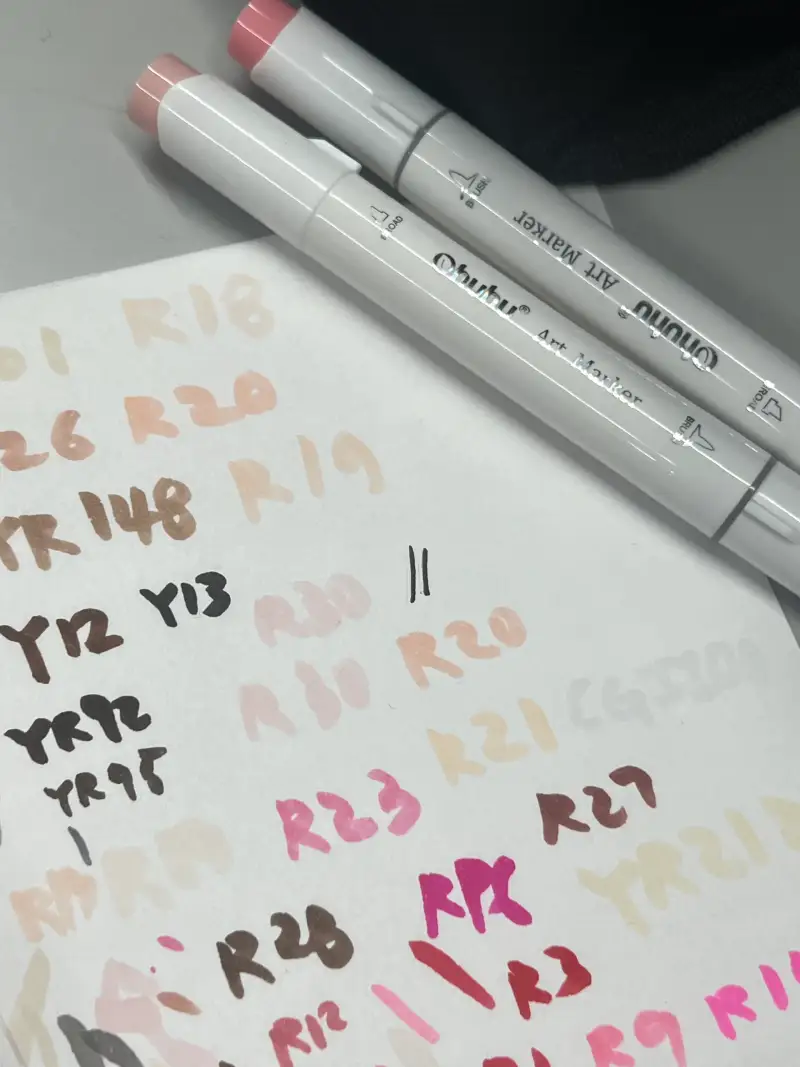 BRUSH
Art Marker
Ohuhu®
BROAD
BROAD
Ohuhu®
Art Marker
BRUSH
01 R18
26 R20
YR148 R19
Y12 Y13 R30
R30 R20
YR92 R21
YR95 R23 R27
YR212
RP6
R28 R3
R12 R9